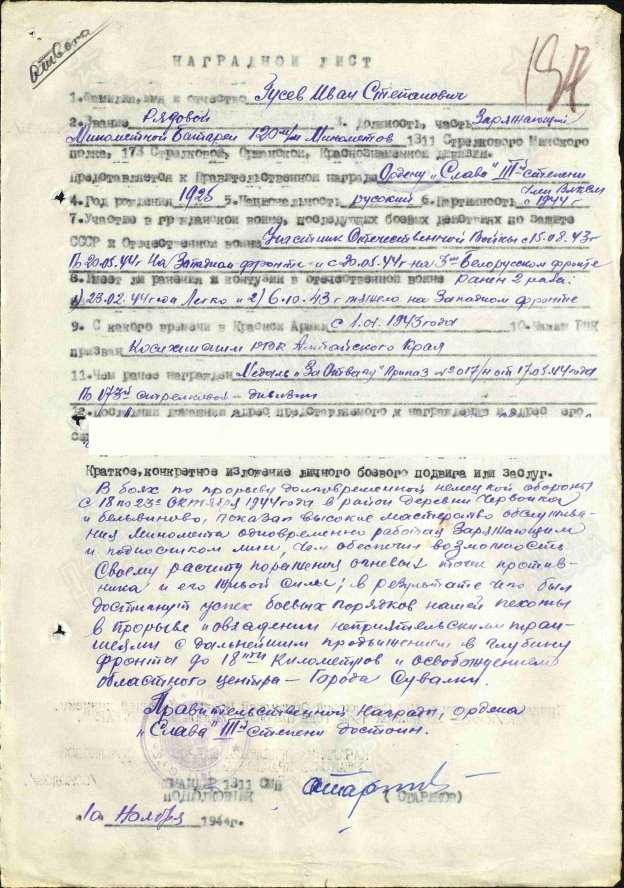 197
НАГРАДНОЙ ЛИСТ
1. Фамилия, имя и отчество Зусев Иван Степанович
2. Звание Рядовой 3. Должность, часть Заряжающий
Минометной батареи 120 м/м Минометов 1311 Стрелкового Минского
полка, 173 Стрелковой, Оршанской, Краснознаменной дивизии.
представляется к Правительственной награде Ордену "Слава" III й степени
4. Год рождения 1925 5. Национальность русский 6. Партийность Член ВЛКСМ с 1944 г
7. Участие в гражданской войне, последующих боевых действиях по защите
СССР и Отечественной войне Участник Отечественной Войны с 15.08.43г
по 20.05.44г на Западном фронте и с 20.05.44г на 3ем Белорусском фронте
8. Имеет ли ранения и контузии в отечественной войне ранен 2 раза:
1) 23.02.44 года Легко и 2) 6.10.43г тяжело на Западном фронте
9. С какого времени в Красной Армии с 1.01.1943 года 10. Каким РВК
призван Косихинским РВК Алтайского Края
11. Чем ранее награжден Медаль "За Отвагу" Приказ № 017/н от 17.05.44 года
По 173й стрелковой дивизии
12. Постоянный домашний адрес представляемого к награждению и адрес его
Краткое, конкретное изложение личного боевого подвига или заслуг.
В боях по прорыву долговременной немецкой обороны
с 18 по 23е октября 1944 года в район деревни Червонка
и Бельвиново, показал высокие мастерство обслужива-
ния Миномета одновременно работая Заряжающим
и подносчиком мин, Чем обеспечил возможность
Своему расчету поражения огневых точки против-
ника и его живой силы; в результате чего был
достигнут успех боевых порядков нашей пехоты
в прорыве и овладении неприятельскими тран-
шеями с дальнейшим продвижением в глубину
фронта до 18 ти Километров и освобождением
областного центра – Города Сувалки.
Правительственной Награды, ордена
"Слава" III й степени достоин.
КОМАНДИР 1311 СМП
ПОДПОЛКОВНИК (СТАРИКОВ)
"10 Ноября 1944г.